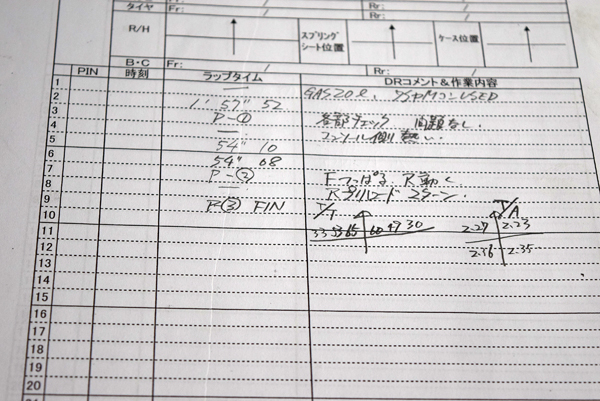 タイヤ Fr: / Rr: /
R/H スプリング シート位置 ケース位置
B・C Fr: / Rr: /
PIN 時刻 ラップタイム DRコメント&作業内容
1 —
2 1' 57" 52 GAS20ℓ, USED
3 P-① 各部チェック 問題なし.
4 — 側 熱い.
5 54" 10
6 54" 08
7 P-② Fつっぱる R動く
8 — Rプリロード
9 P-③ FIN
10 T/T T/A
11 33 53 65 60 49 30 2.27 2.23
12 2.16 2.35
13
14
15
16
17
18
19
20